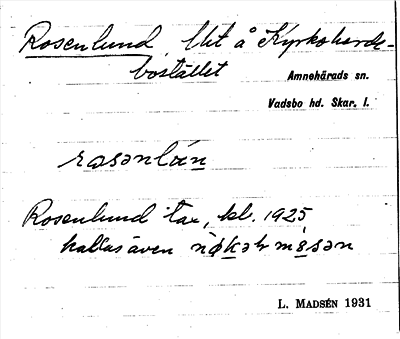 Rosenlund, Utt å Kyrkoherde-
bostället
Amnehärads sn.
Vadsbo hd. Skar. l.
rasənlún
Rosenlund tax, bl. 1925
kallas även
L. MADSÉN 1931